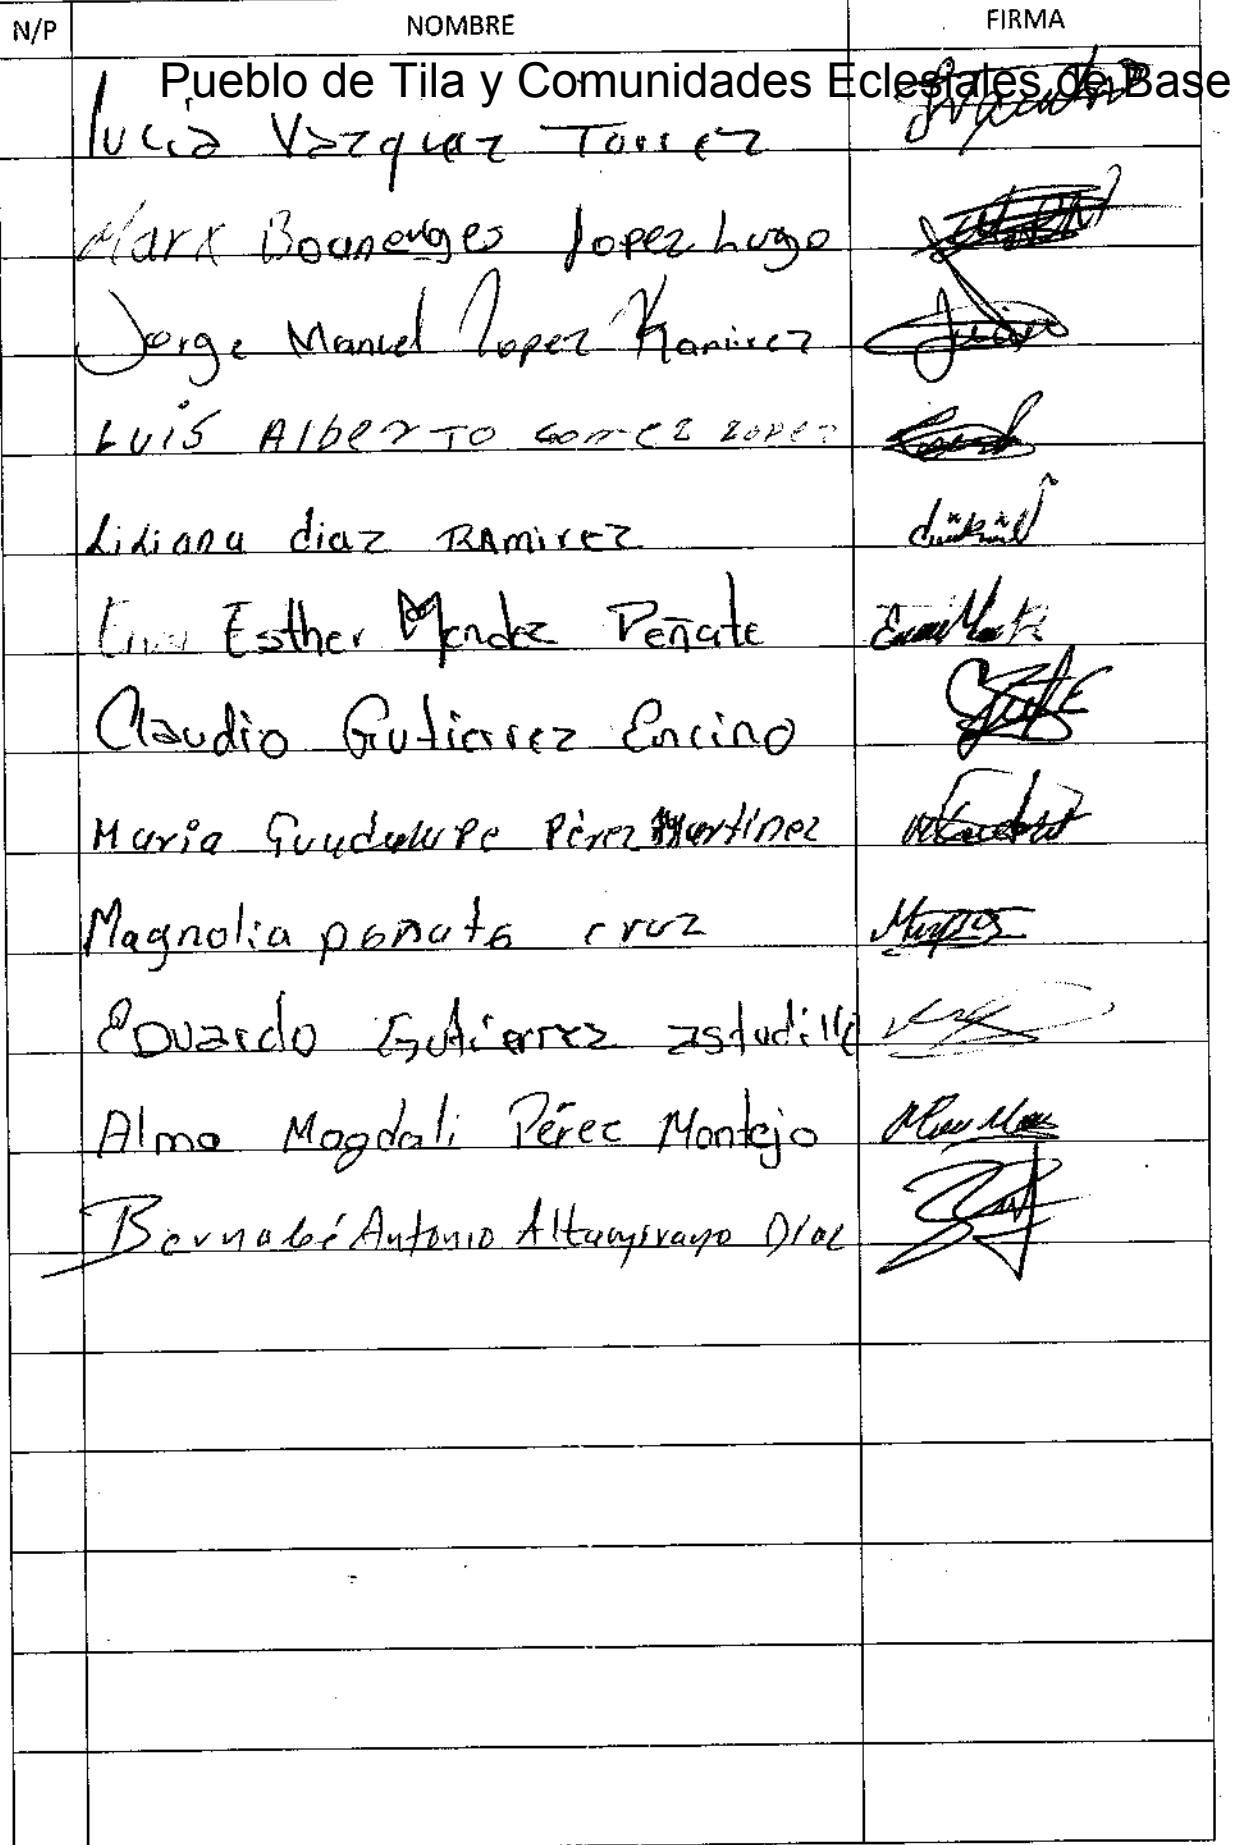 N/P NOMBRE FIRMA
Pueblo de Tila y Comunidades Eclesiales de Base
lucia Vazquez Torrez
Marx Boanerges lopez Lugo
Jorge Manuel lopez Ramirez
Luis Alberto Gomez Lopez
Liliana diaz RAmirez
Esther Mendez Peñate
Claudio Gutierrez Encino
Maria Guadalupe Pérez Martínez
Magnolia peñate cruz
EDuardo Gutierrez astudillo
Alma Magdali Pérez Montejo
Bernabé Antonio Altamirano Diaz